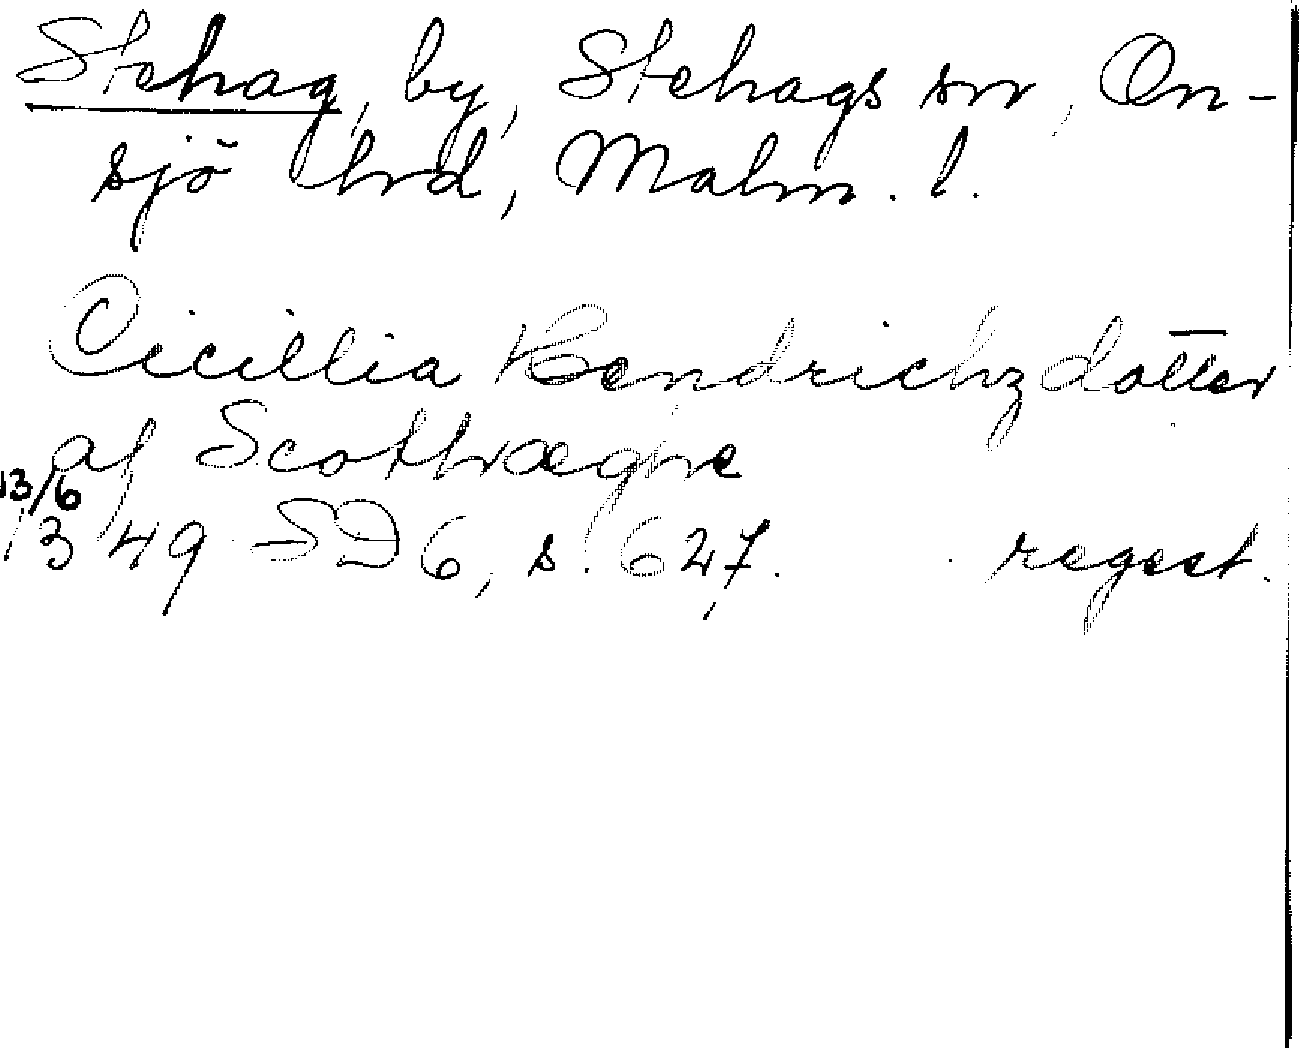 Stehag, by, Stehags sn, On-
sjö hrd, Malm. l.
Cicillia Hendrichz dotter
af Scothræghe
13/6
1349 SD 6, s. 627. regest.